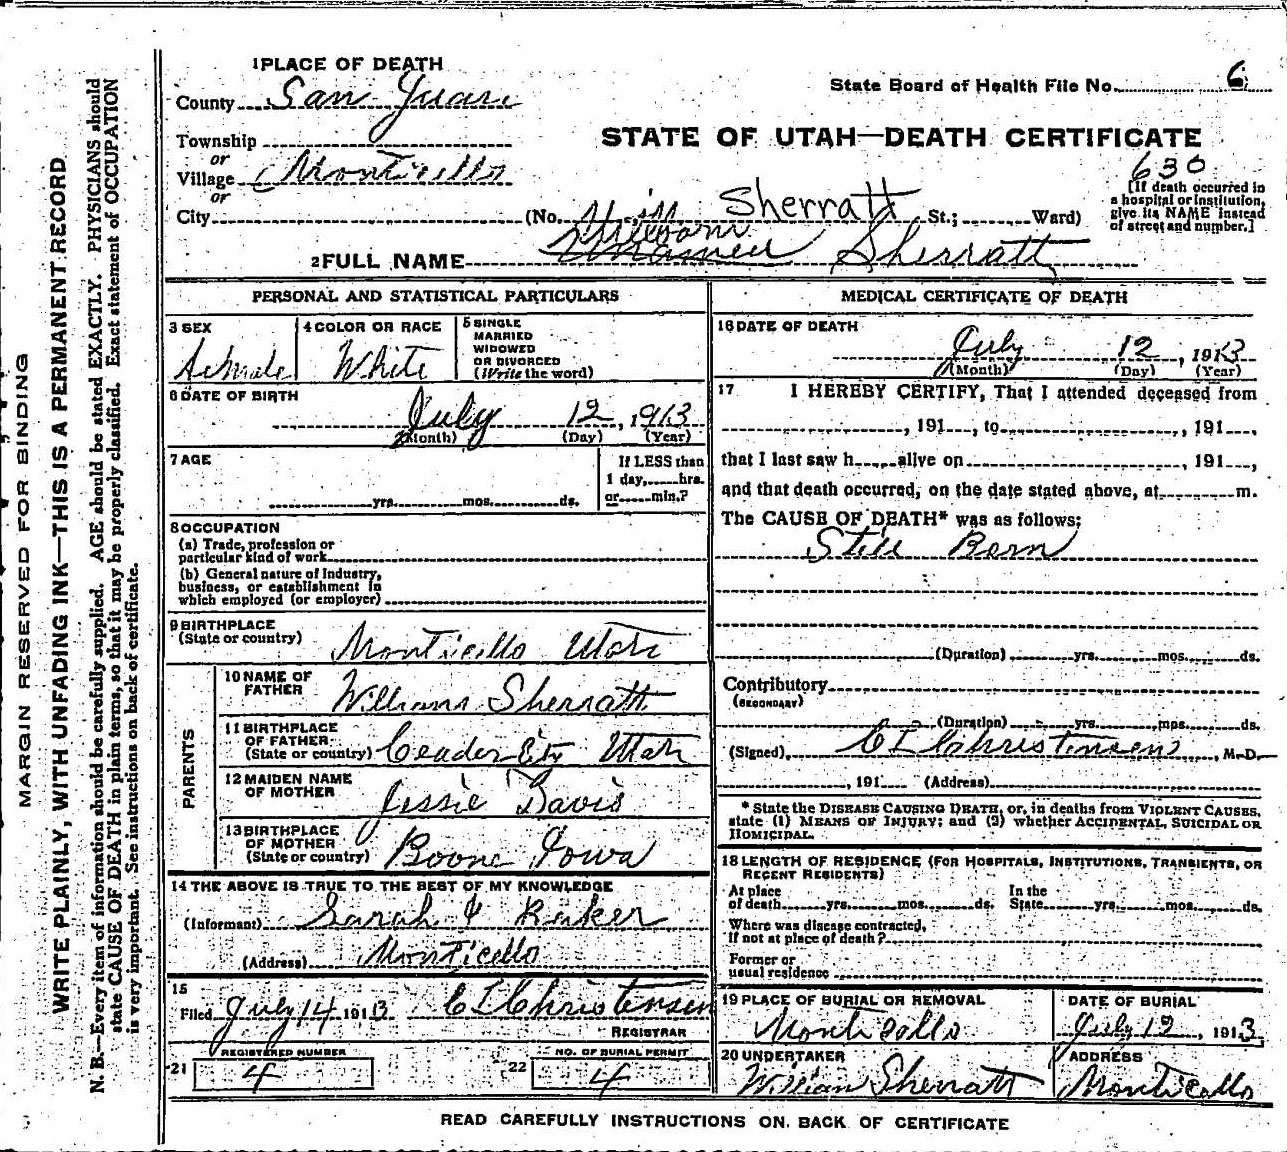 1 PLACE OF DEATH
State Board of Health File No. 6
County San Juan
STATE OF UTAH—DEATH CERTIFICATE
Township
or
630
Village Monticello
or
[If death occurred in
a hospital or institution,
give its NAME instead
of street and number.]
City (No. Sherratt St.; Ward)
Stilborn
2 FULL NAME Unnamed Sherratt
PERSONAL AND STATISTICAL PARTICULARS
3 SEX
Female
4 COLOR OR RACE
White
5 SINGLE
MARRIED
WIDOWED
OR DIVORCED
(Write the word)
6 DATE OF BIRTH
July 12, 1913
(Month) (Day) (Year)
7 AGE
yrs. mos. ds.
If LESS than
1 day, hrs.
or min.?
8 OCCUPATION
(a) Trade, profession or
particular kind of work
(b) General nature of industry,
business, or establishment in
which employed (or employer)
9 BIRTHPLACE
(State or country) Monticello Utah
PARENTS
10 NAME OF
FATHER William Sherratt
11 BIRTHPLACE
OF FATHER
(State or country) Ceader City Utah
12 MAIDEN NAME
OF MOTHER Jessie Davis
13 BIRTHPLACE
OF MOTHER
(State or country) Boone Iowa
14 THE ABOVE IS TRUE TO THE BEST OF MY KNOWLEDGE
(Informant) Sarah Baker
(Address) Monticello
15
Filed July 14 1913 C I Christensen
REGISTRAR
REGISTERED NUMBER
21 4
NO. OF BURIAL PERMIT
22 4
MEDICAL CERTIFICATE OF DEATH
16 DATE OF DEATH
July 12, 1913
(Month) (Day) (Year)
17 I HEREBY CERTIFY, That I attended deceased from
, 191 , to , 191 ,
that I last saw h alive on , 191 ,
and that death occurred, on the date stated above, at m.
The CAUSE OF DEATH* was as follows:
Still Born
(Duration) yrs. mos. ds.
Contributory
(SECONDARY)
(Duration) yrs. mos. ds.
(Signed) C I Christensen, M.D.
, 191 (Address)
* State the DISEASE CAUSING DEATH, or, in deaths from VIOLENT CAUSES,
state (1) MEANS OF INJURY; and (2) whether ACCIDENTAL, SUICIDAL OR
HOMICIDAL.
18 LENGTH OF RESIDENCE (FOR HOSPITALS, INSTITUTIONS, TRANSIENTS, OR
RECENT RESIDENTS)
At place
of death yrs. mos. ds.
In the
State yrs. mos. ds.
Where was disease contracted,
if not at place of death?
Former or
usual residence
19 PLACE OF BURIAL OR REMOVAL
Monticello
DATE OF BURIAL
July 12, 1913
20 UNDERTAKER
William Sherratt
ADDRESS
Monticello
READ CAREFULLY INSTRUCTIONS ON BACK OF CERTIFICATE
MARGIN RESERVED FOR BINDING
WRITE PLAINLY, WITH UNFADING INK—THIS IS A PERMANENT RECORD
N. B.—Every item of information should be carefully supplied. AGE should be stated EXACTLY. PHYSICIANS should
state CAUSE OF DEATH in plain terms, so that it may be properly classified. Exact statement of OCCUPATION
is very important. See instructions on back of certificate.